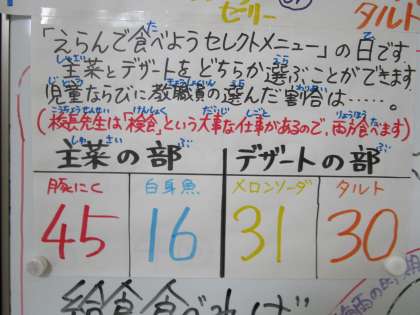 ゼリー
タルト
「えらんで食べよう セレクトメニュー」の日です。
主菜とデザートをどちらか選ぶことができます
児童ならびに教職員の選んだ割合は……。
(校長先生は「検食」という大事な仕事があるので、両方食べます)
主菜の部
デザートの部
豚にく
白身魚
メロンソーダ
タルト
45
16
31
30
給食食べれば